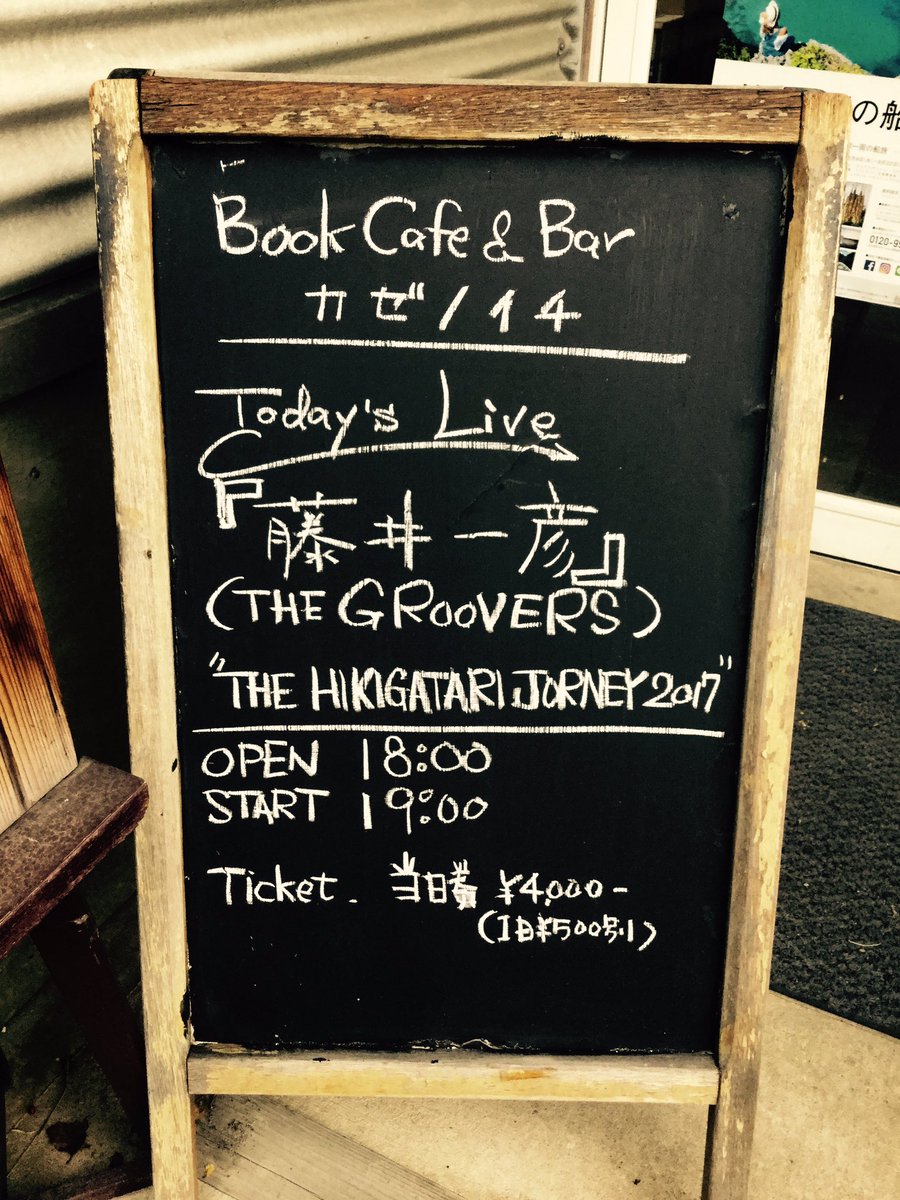 Book Cafe & Bar
カゼノイチ
Today's Live
『藤井一彦』
(THE GROOVERS)
"THE HIKIGATARI JORNEY 2017"
OPEN 18:00
START 19:00
Ticket. 当日券 ¥4,000-
(1日¥500別)
の船
0120-9